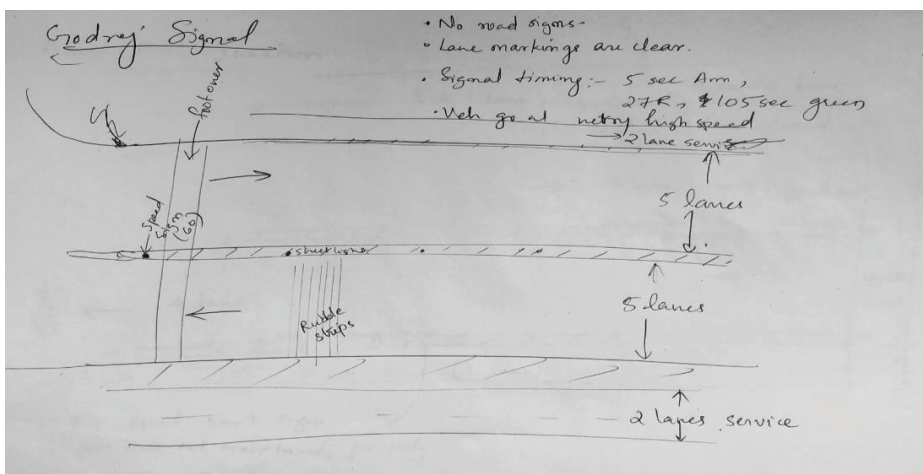 Godrej Signal
• No road signs.
• Lane markings are clear.
• Signal timing:- 5 sec Am,
27R, 105 sec green
• Veh go at very high speed
→ 2 lane service
footover
5 lanes
speed
sign
(60)
streetlights
Rubble
strips
5 lanes
2 lanes service